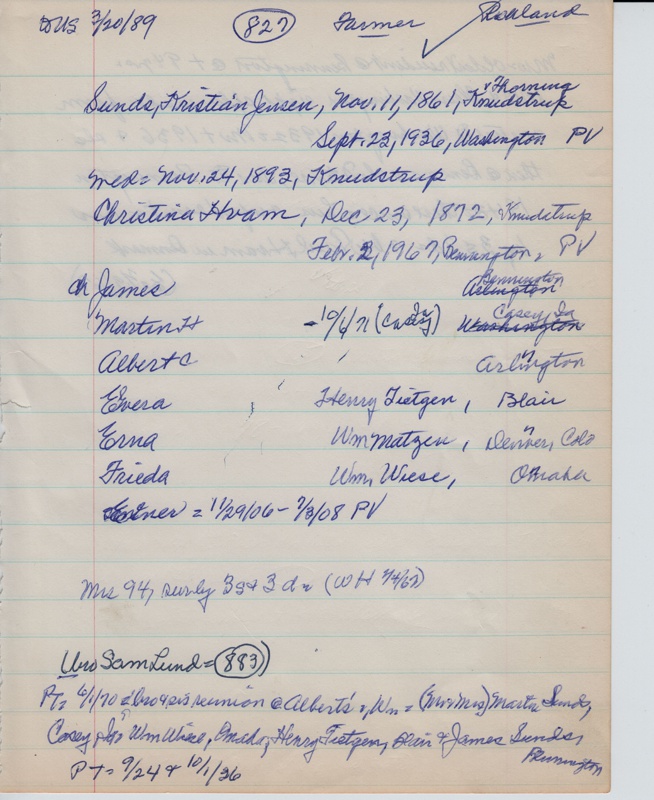 DUS 3/20/89 827 Farmer Roaland
Thorning
Sunds, Kristian Jensen, Nov. 11, 1861, Knudstrup
Sept. 23, 1936, Washington PV
med = Nov. 24, 1893, Knudstrup
Christina Hvam, Dec 23, 1872, Knudstrup
Febr. 2, 1967, Bennington, PV
Bennington
ch James Arlington
Casey, Ia
Martin H - 10/6/71 (Casey Ia) Washington
Albert C Arlington
Evera Henry Tietgen, Blair
Erna Wm Matzen, Denver, Colo
Frieda Wm, Wiese, Omaha
Enner = 11/29/06 - 7/3/08 PV
Mrs 94, surv by 3 s + 3 d = (WH 2/4/67)
Uro Sam Lund = 883
PT = 6/1/70 = bro & sis reunion @ Albert's =, Wn = (Mr & Mrs) Martin Sunds,
Casey, Ia Wm Wiese, Omaha, Henry Tietgen, Blair + James Sunds,
Bennington
PT = 9/24 + 10/1/36